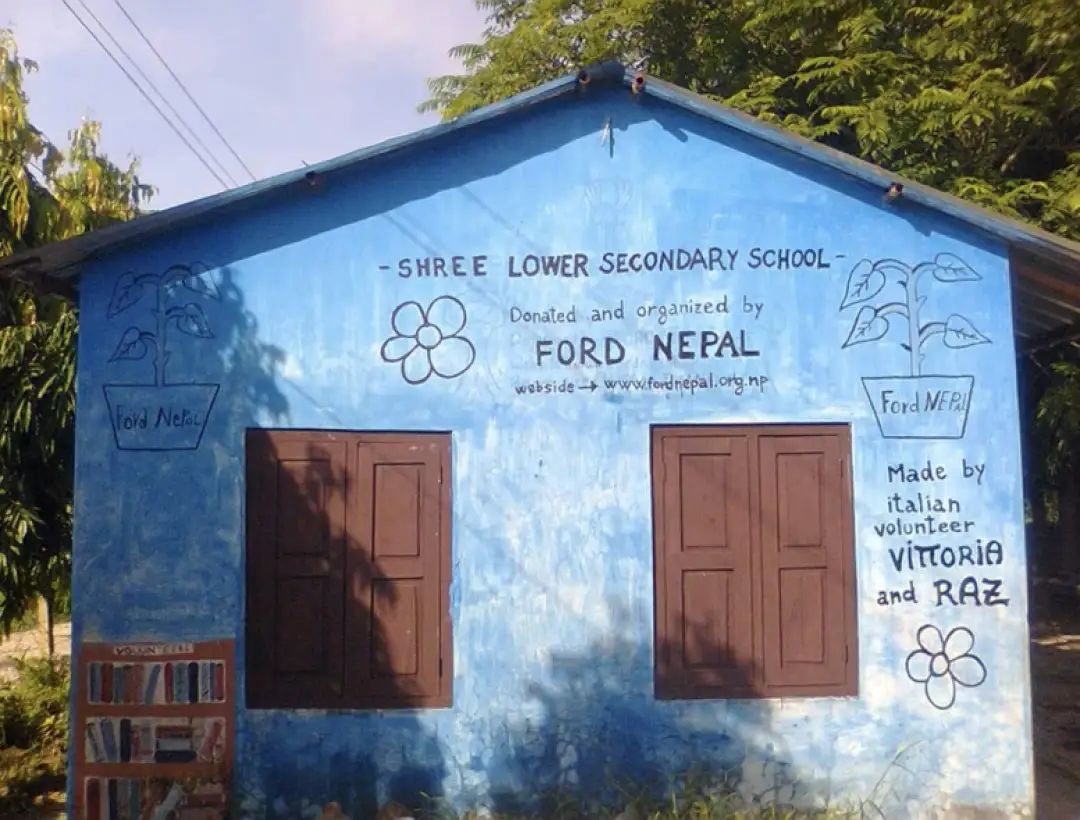 - SHREE LOWER SECONDARY SCHOOL -
Donated and organized by
FORD NEPAL
webside → www.fordnepal.org.np
Ford Nepal
Ford NEPAL
Made by
italian
volunteer
VITTORIA
and RAZ